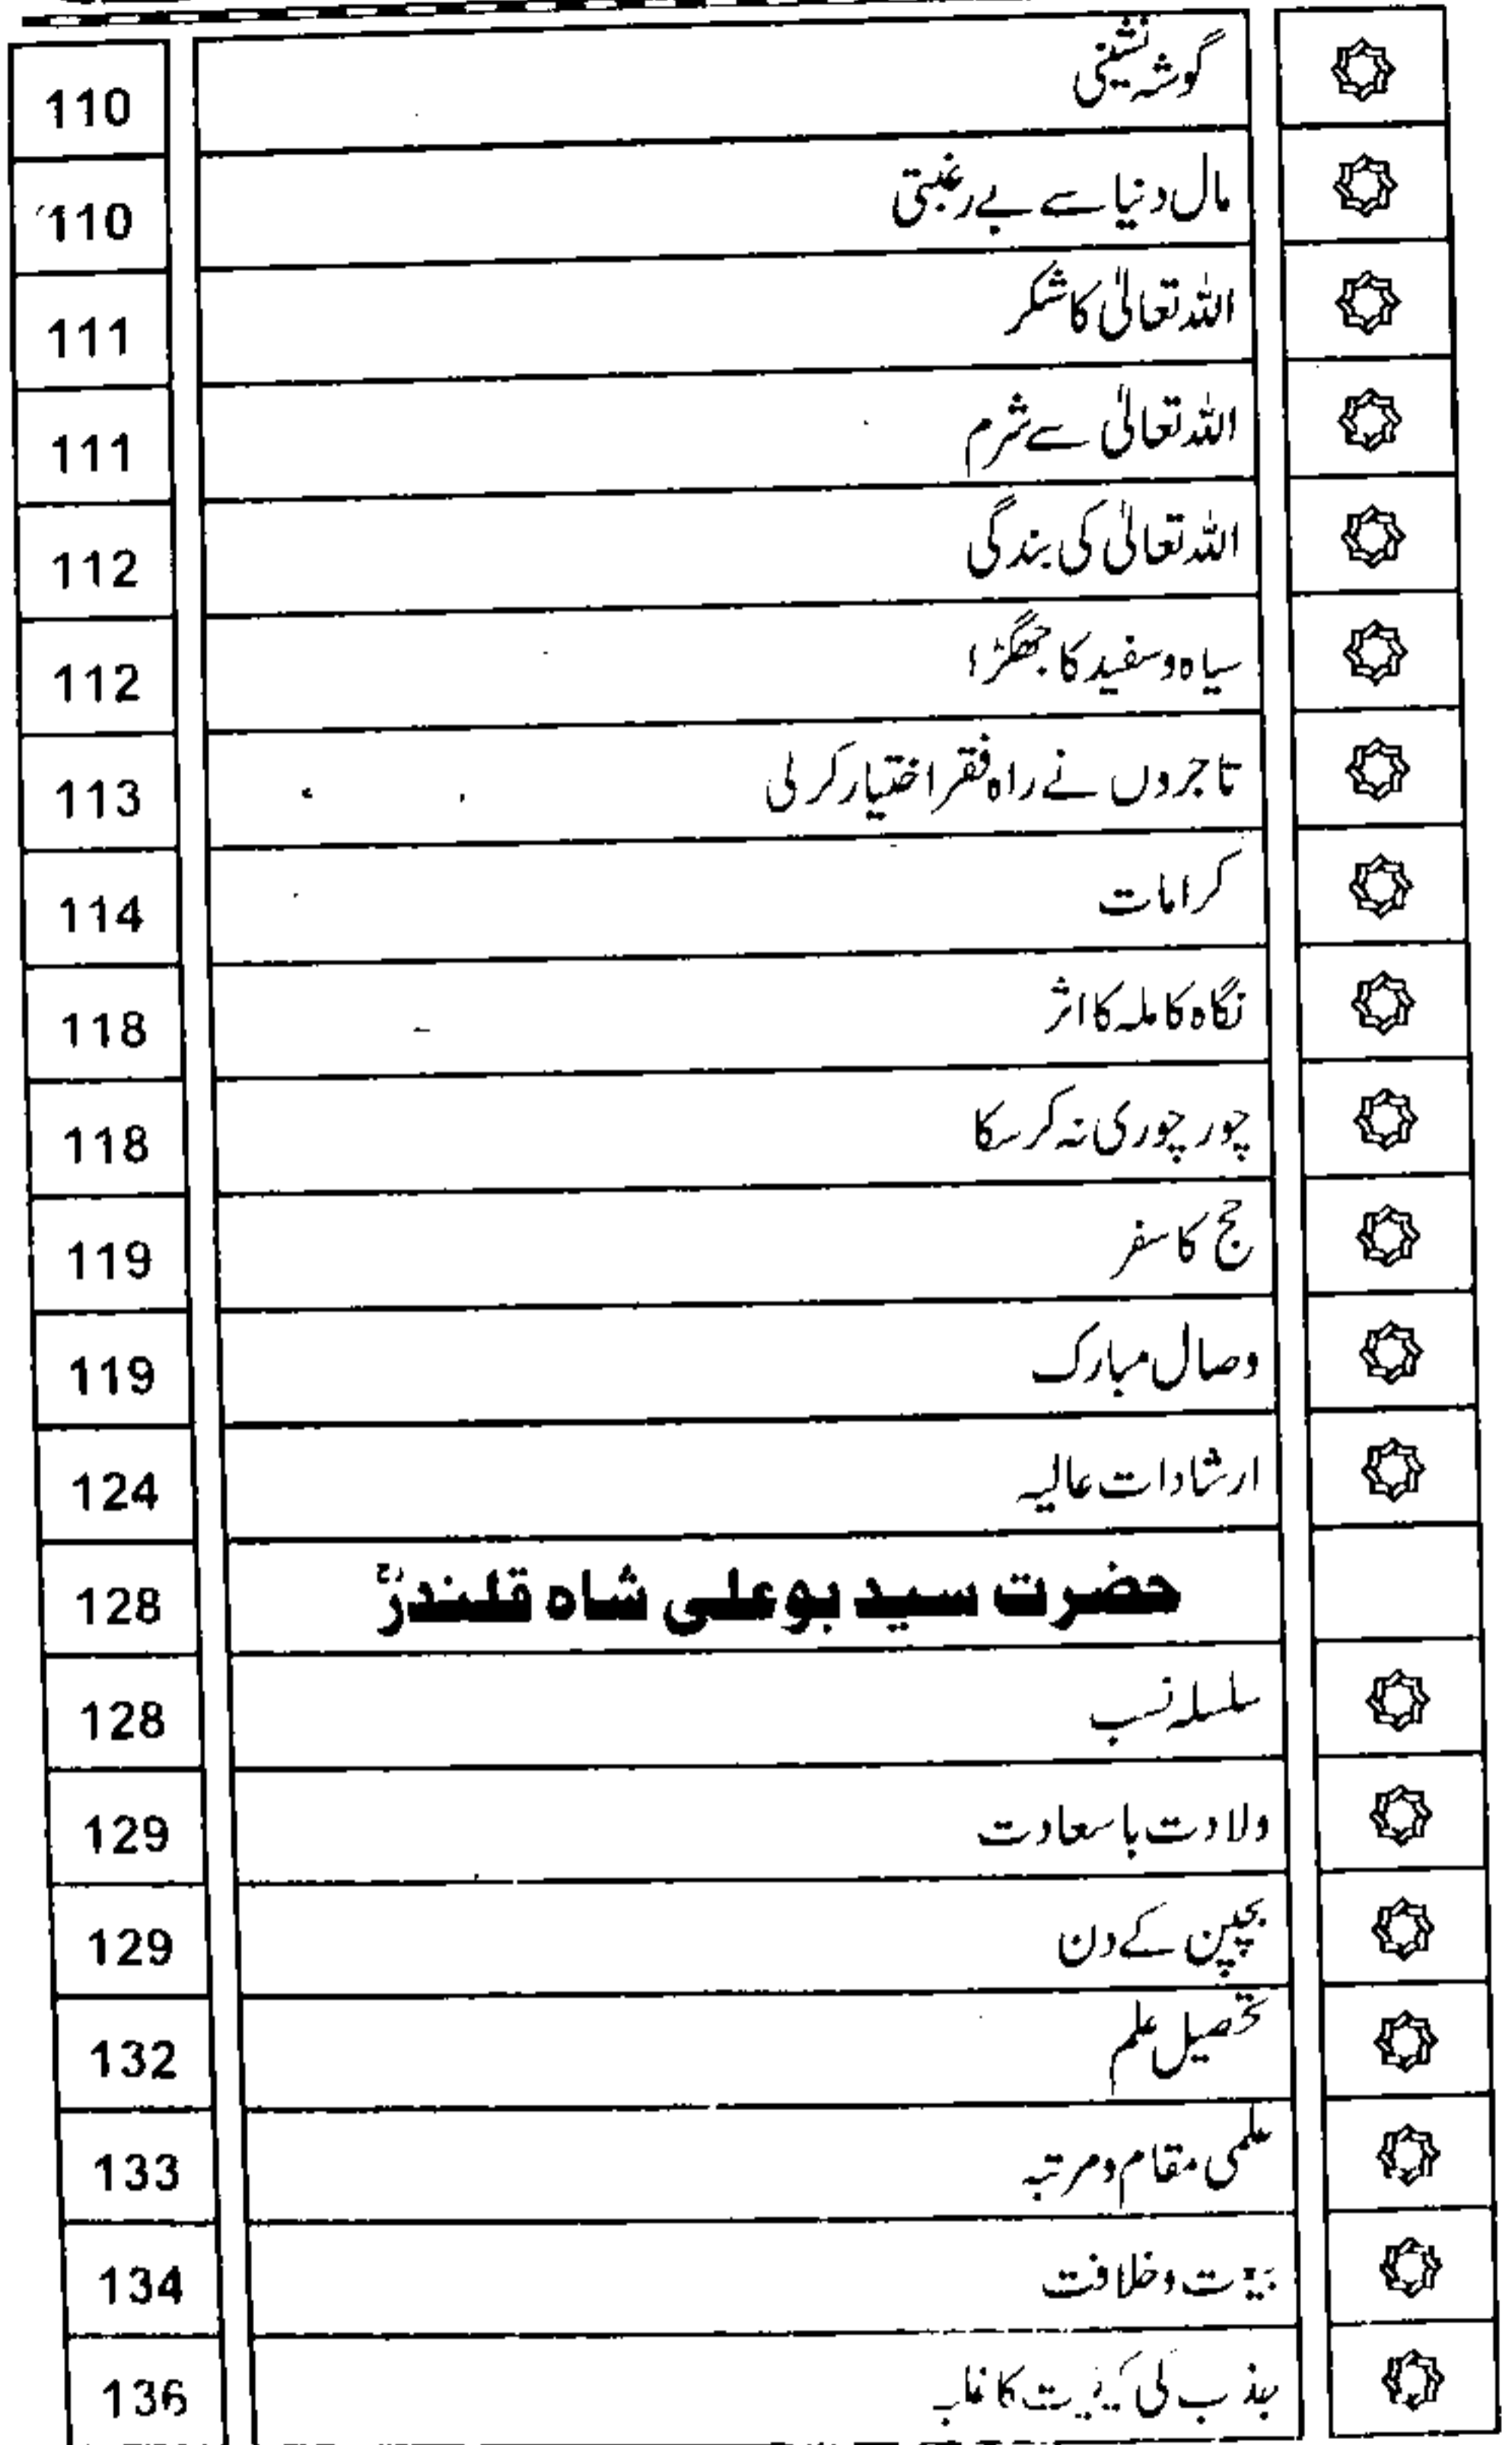 گوشہ نشینی 110
مال دنیا سے بے رغبتی 110
اللہ تعالیٰ کا شکر 111
اللہ تعالیٰ سے شرم 111
اللہ تعالیٰ کی بندگی 112
سیاہ و سفید کا جھگڑا 112
تاجروں نے راہ فقر اختیار کر لی 113
کرامات 114
نگاہ کاملہ کا اثر 118
چور چوری نہ کر سکا 118
حج کا سفر 119
وصال مبارک 119
ارشادات عالیہ 124
حضرت سید بو علی شاہ قلندرؒ 128
سلسلہ نسب 128
ولادت باسعادت 129
بچپن کے دن 129
تحصیل علم 132
علمی مقام و مرتبہ 133
بیعت و خلافت 134
جذب کی کیفیت کا غلبہ 136